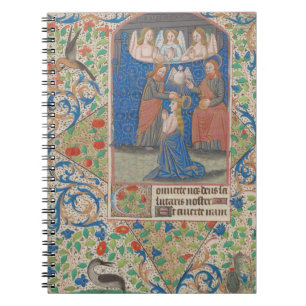 onuerte nos deus sa
lutaris noster
Et auerte iram